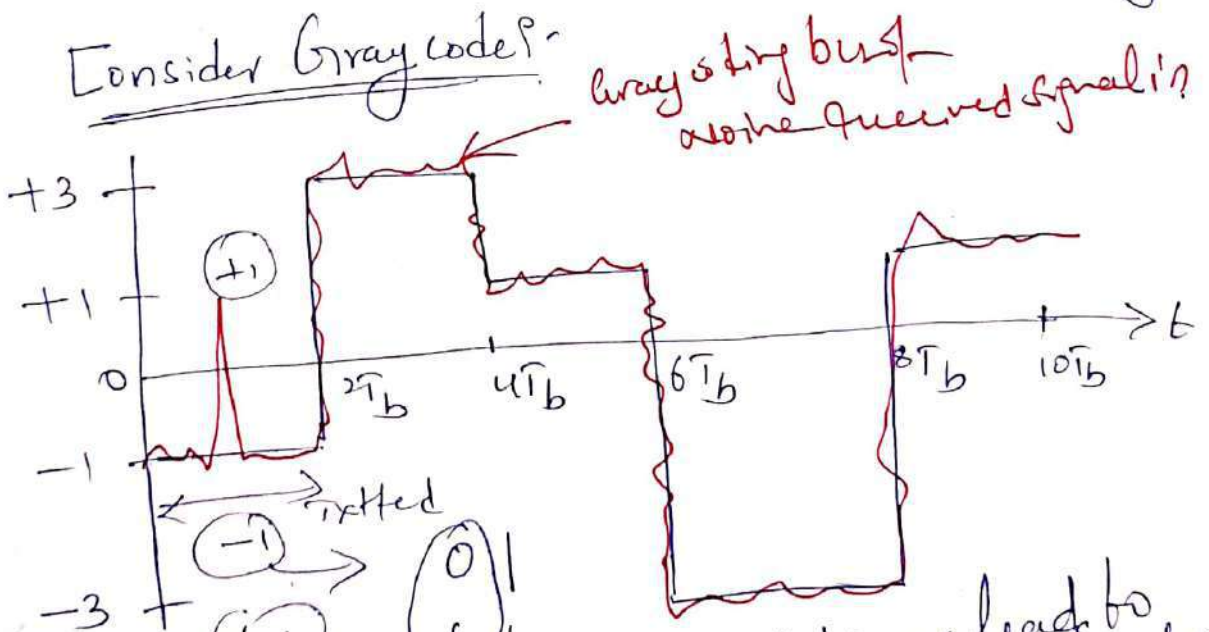 Consider Gray code:-
Gray coding
received signal in
+3
+1
+1
0
2Tb
4Tb
6Tb
8Tb
10Tb
t
-1
Txtted
-1
0
-3
lead to